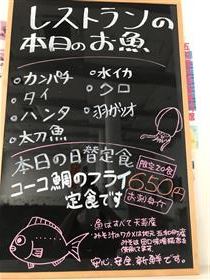 レストランの
本日のお魚
・カンパチ ・水イカ
・タイ ・クロ
・ハンタ ・羽ガツオ
・太刀魚
本日の日替定食 限定20食
コーコ鯛のフライ 650円
定食です お刺身付
・魚はすべて天草産
・みそ汁のワカメは地元 五和町産
安心、安全、新鮮です。